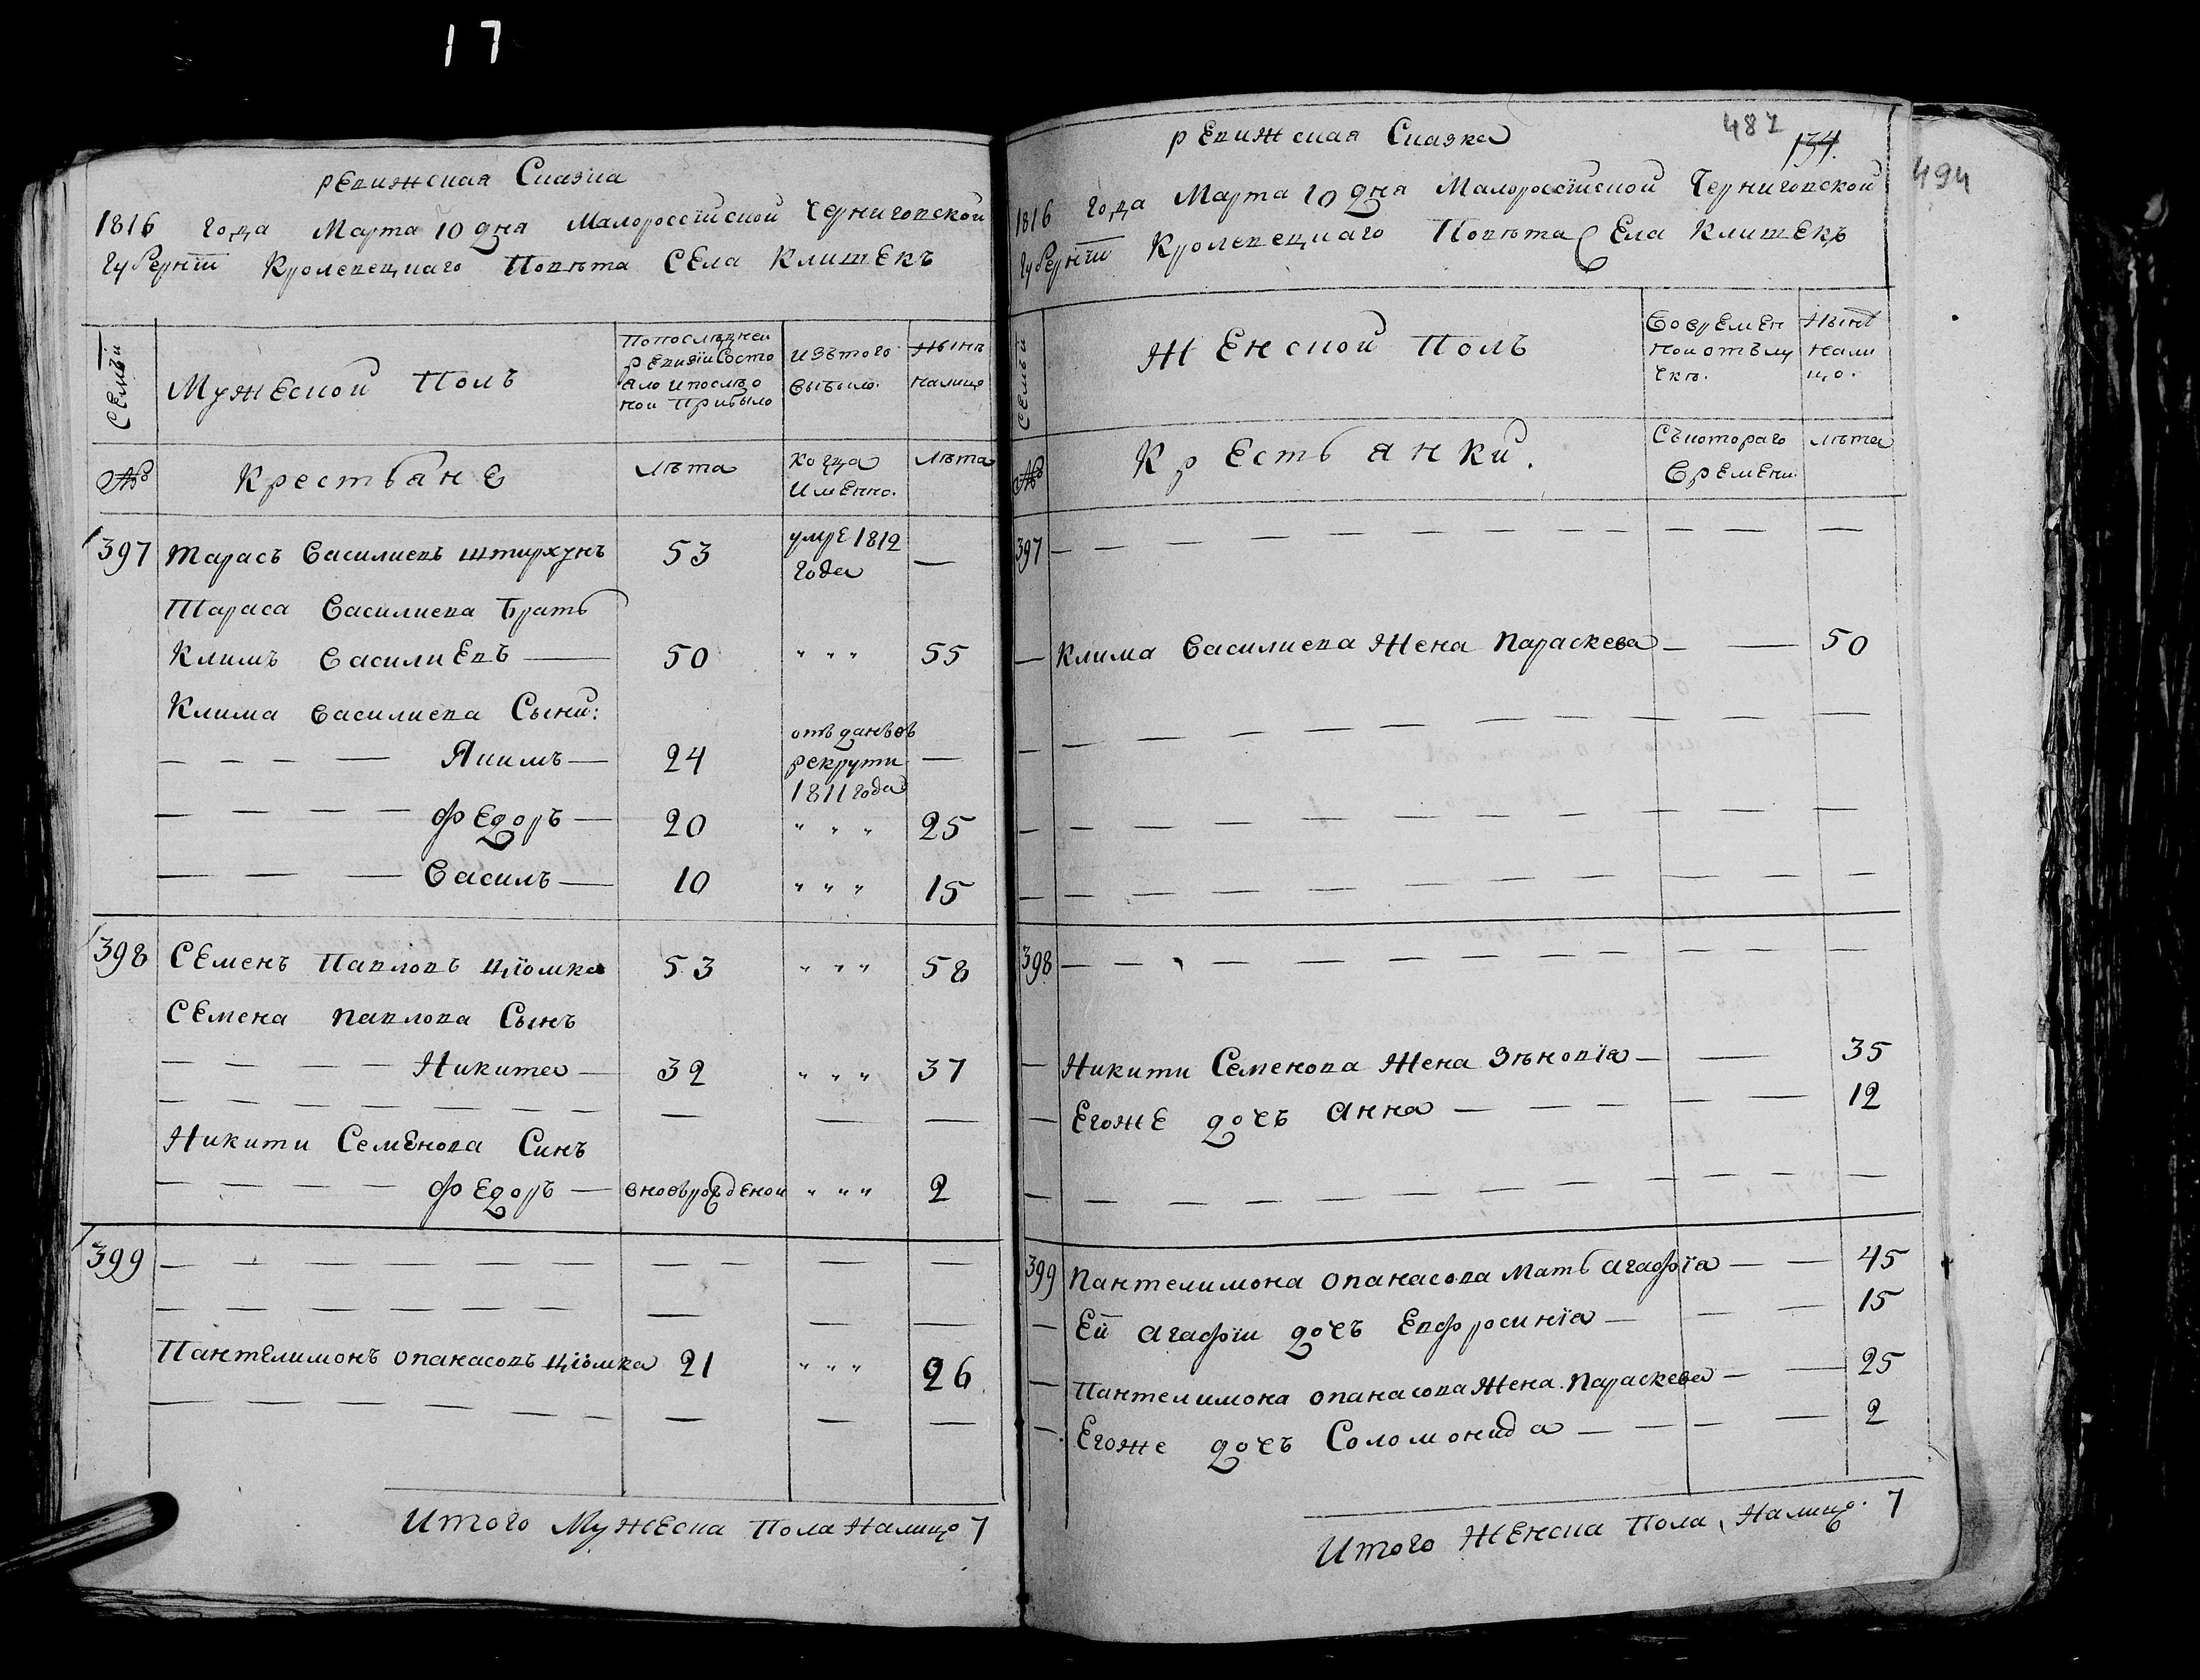 17
ревижская Сказка
1816 года Марта 10 дня Малороссійской Черниговской
Губерніи Кролевецкаго Повѣта Села Клишекъ
Семьи
Мужеской Полъ
Попоследней
ревизіи Состо
яло ипослѣо
ной Прибыло
изътого
выбыло.
Нынѣ
налицо
№
Крестьяне
лѣта
когда
Именно.
лѣта
397 Тарасъ Василиевъ штирхунъ 53 умре 1812 —
года
Тараса Василиева Братъ
Климъ Василиевъ — 50 " " " 55
Клима Василиева Сыни:
— — — — Якимъ — 24 отъданъвъ рекрути 1811 года —
— — — — Федоръ — 20 " " " 25
— — — — Василъ — 10 " " " 15
398 Семенъ Павловъ Цюмка 53 " " " 58
Семена Павлова Сынъ
— — — — Никита — 32 " " " 37
— — — — — — — — — — —
Никити Семенова Синъ
— — — — Федоръ — вновърожденой " " " 2
399 — — — — — — — — — — —
— — — — — — — — — —
Пантелимонъ опанасовъ Цюмка 21 " " " 26
— — — — — — — — — —
Итого Мужеска Пола Налицо 7
487
134.
494
ревижская Сказка
1816 года Марта 10 дня Малороссійской Черниговской
Губерніи Кролевецкаго Повѣта Села Клишекъ
Семьи
Женской Полъ
Вовремен
ной отълу
чкѣ.
Нынѣ
нали
цо.
№
Крестьянки.
Съкотораго
Времени.
лѣта
397 — — — — — — — — — —
— Клима Василиева Жена Параскева — — 50
— — — — — — — — — —
— — — — — — — — — —
— — — — — — — — — —
398 — — — — — — — — — —
— Никити Семенова Жена Зѣновія — — 35
— Егоже дочъ Анна — — — — — 12
— — — — — — — — — —
399 Пантелимона опанасова Мать агафія — — 45
— Ей агафіи дочъ Евфросинія — — — 15
— Пантелимона опанасова Жена Параскева — — 25
— Егоже дочъ Соломонида — — — — 2
Итого Женска Пола, Налицо. 7